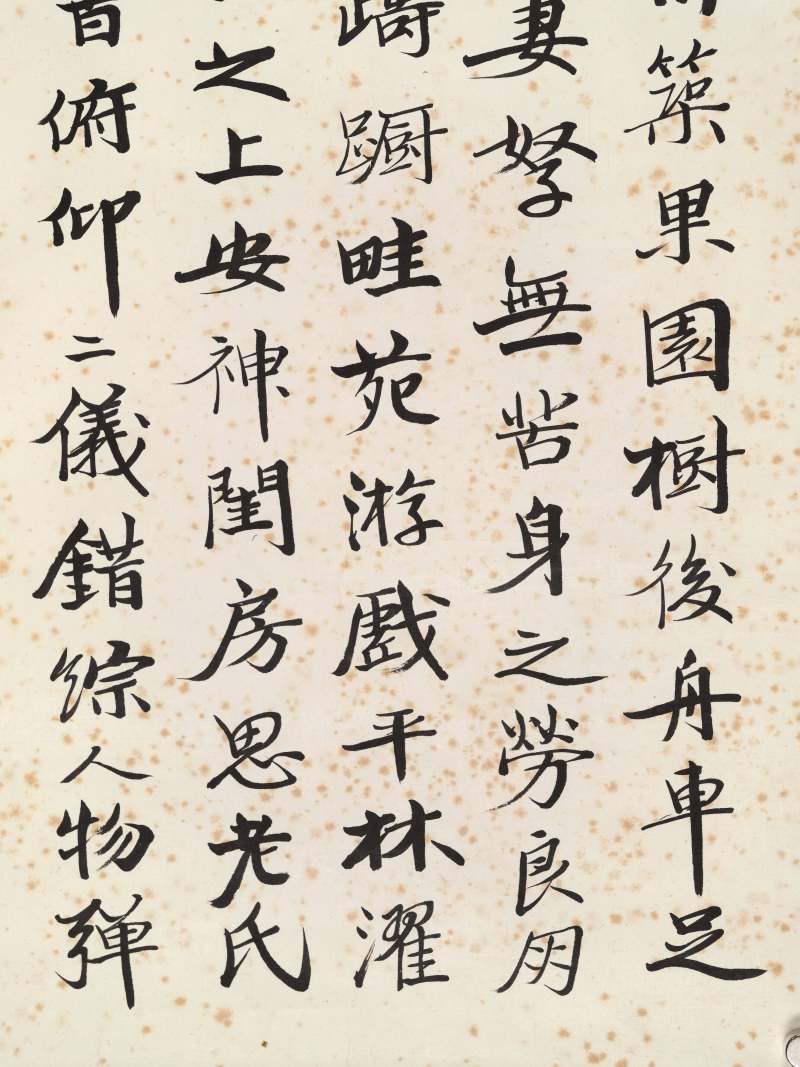 築果園樹後舟車足
妻孥無苦身之勞良朋
蹰畦苑游戲平林濯
之上安神閨房思老氏
俯仰二儀錯綜人物彈